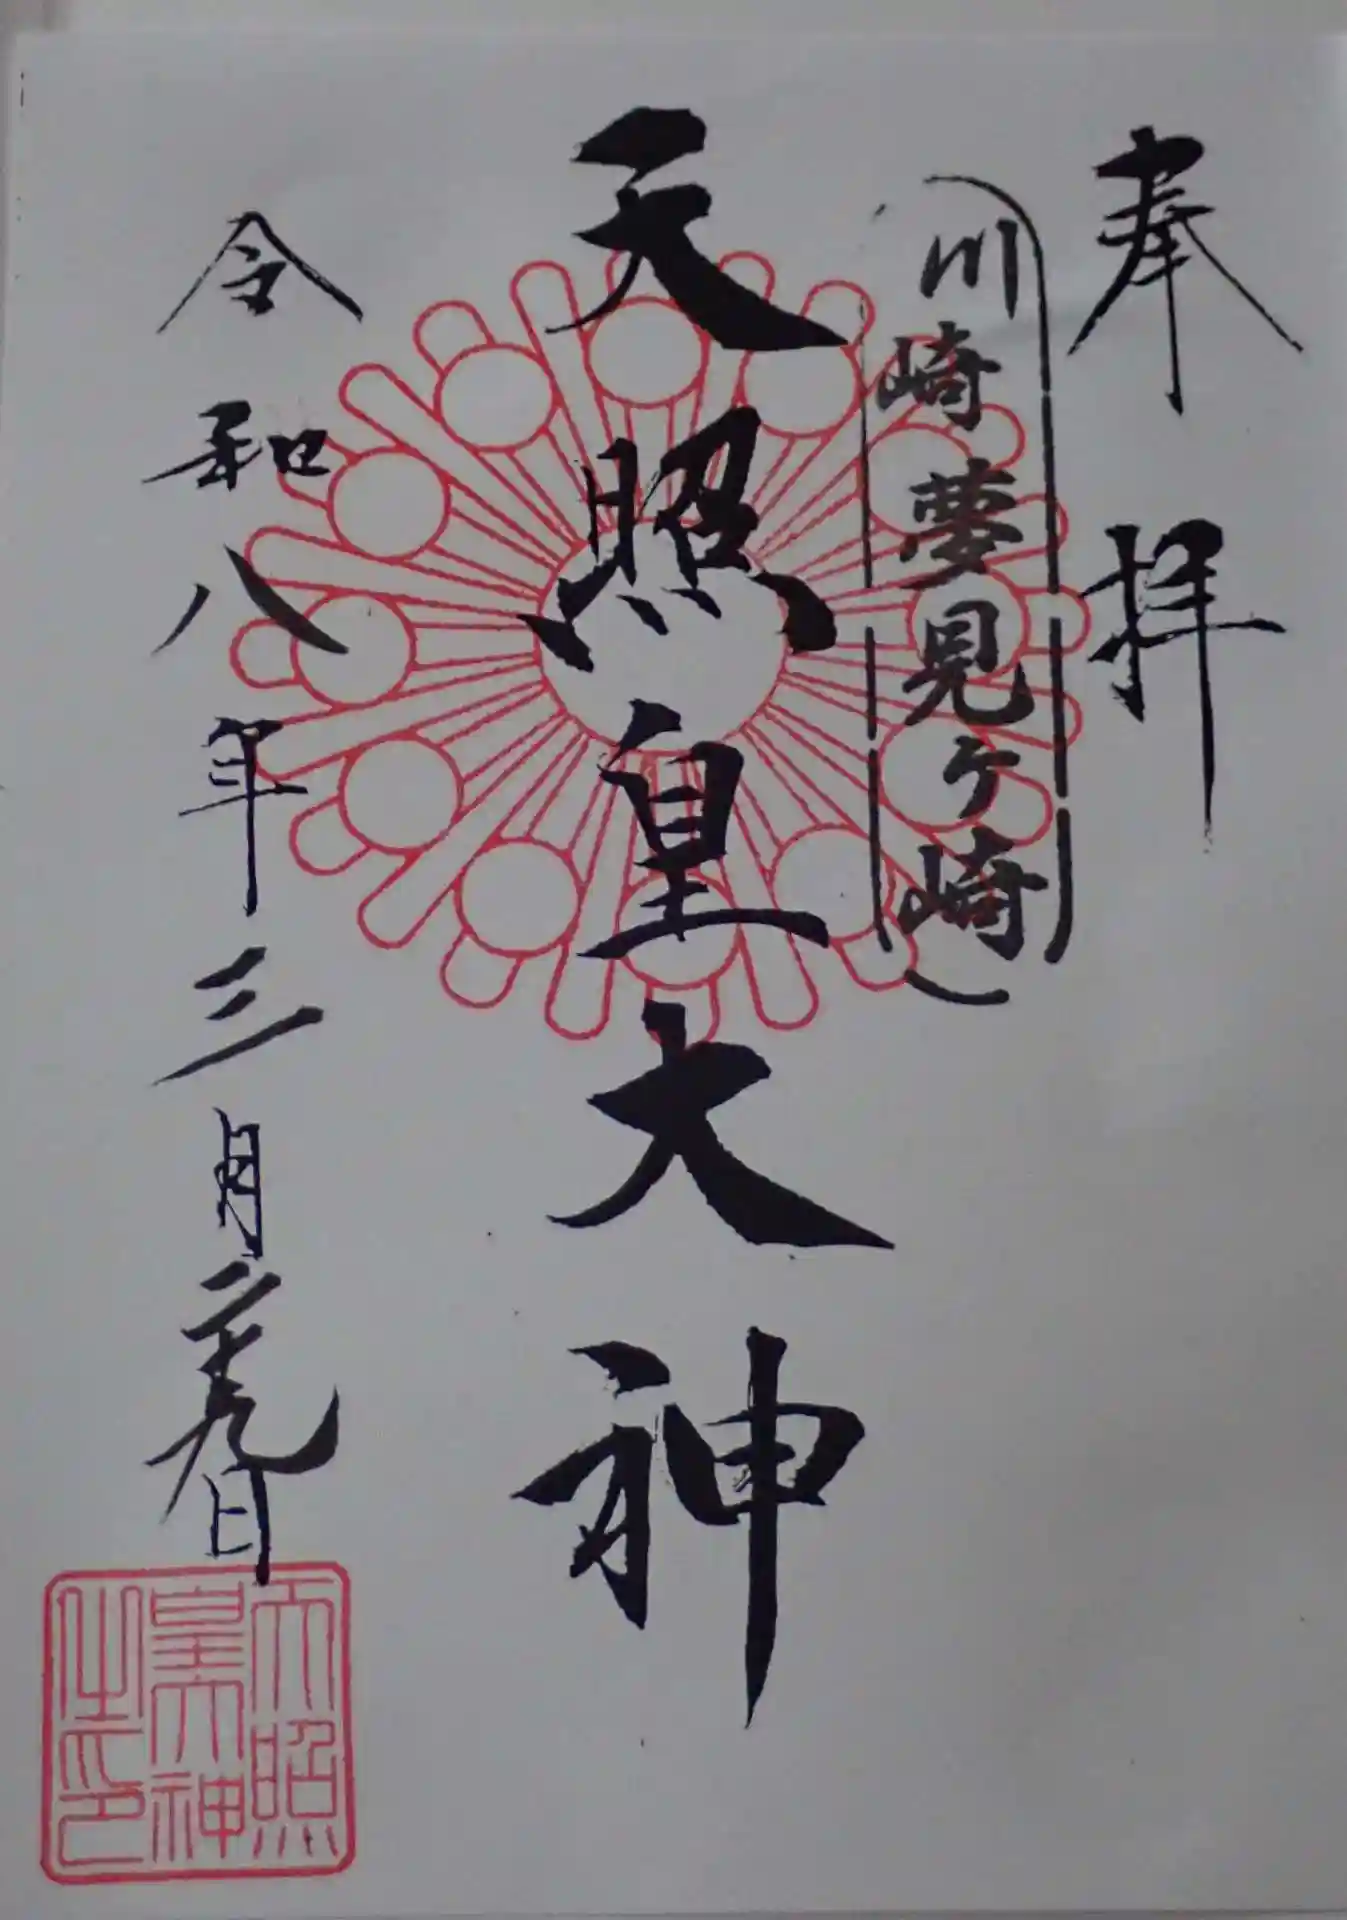 奉拝
川崎夢見ヶ崎
天照皇大神
令和八年三月二十九日
天照
皇大神
之印